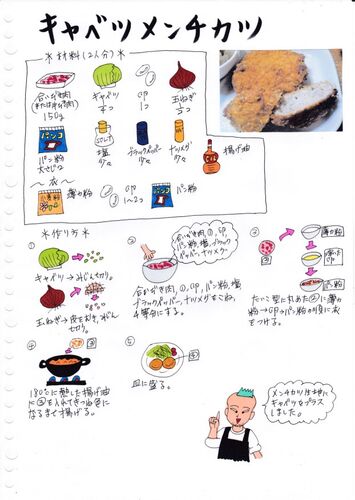 キャベツメンチカツ
＊材料(2人分)＊
合いびき肉
150g
キャベツ
卵
1コ
玉ねぎ
パン粉
大さじ2
塩
少々
ブラックペッパー
少々
ナツメグ
少々
揚げ油
〜衣〜
薄力粉
卵
1〜2コ
パン粉
＊作り方＊
①
キャベツ→みじん切り。
玉ねぎ→皮をむき、みじん
切り。
②
合いびき肉、①、卵、
パン粉、塩、ブラック
ペッパー、ナツメグ
合いびき肉、①、卵、パン粉、塩
ブラックペッパー、ナツメグをこね、
4等分にする。
③
薄力粉
パン粉
たわら型に丸めた②に薄力
粉→卵→パン粉の順に衣
をつける。
④
③
180℃に熱した揚げ油
に③を入れてきつね色に
なるまで揚げる。
⑤
④
皿に盛る。
メンチカツ生地に
キャベツをプラス
しました。